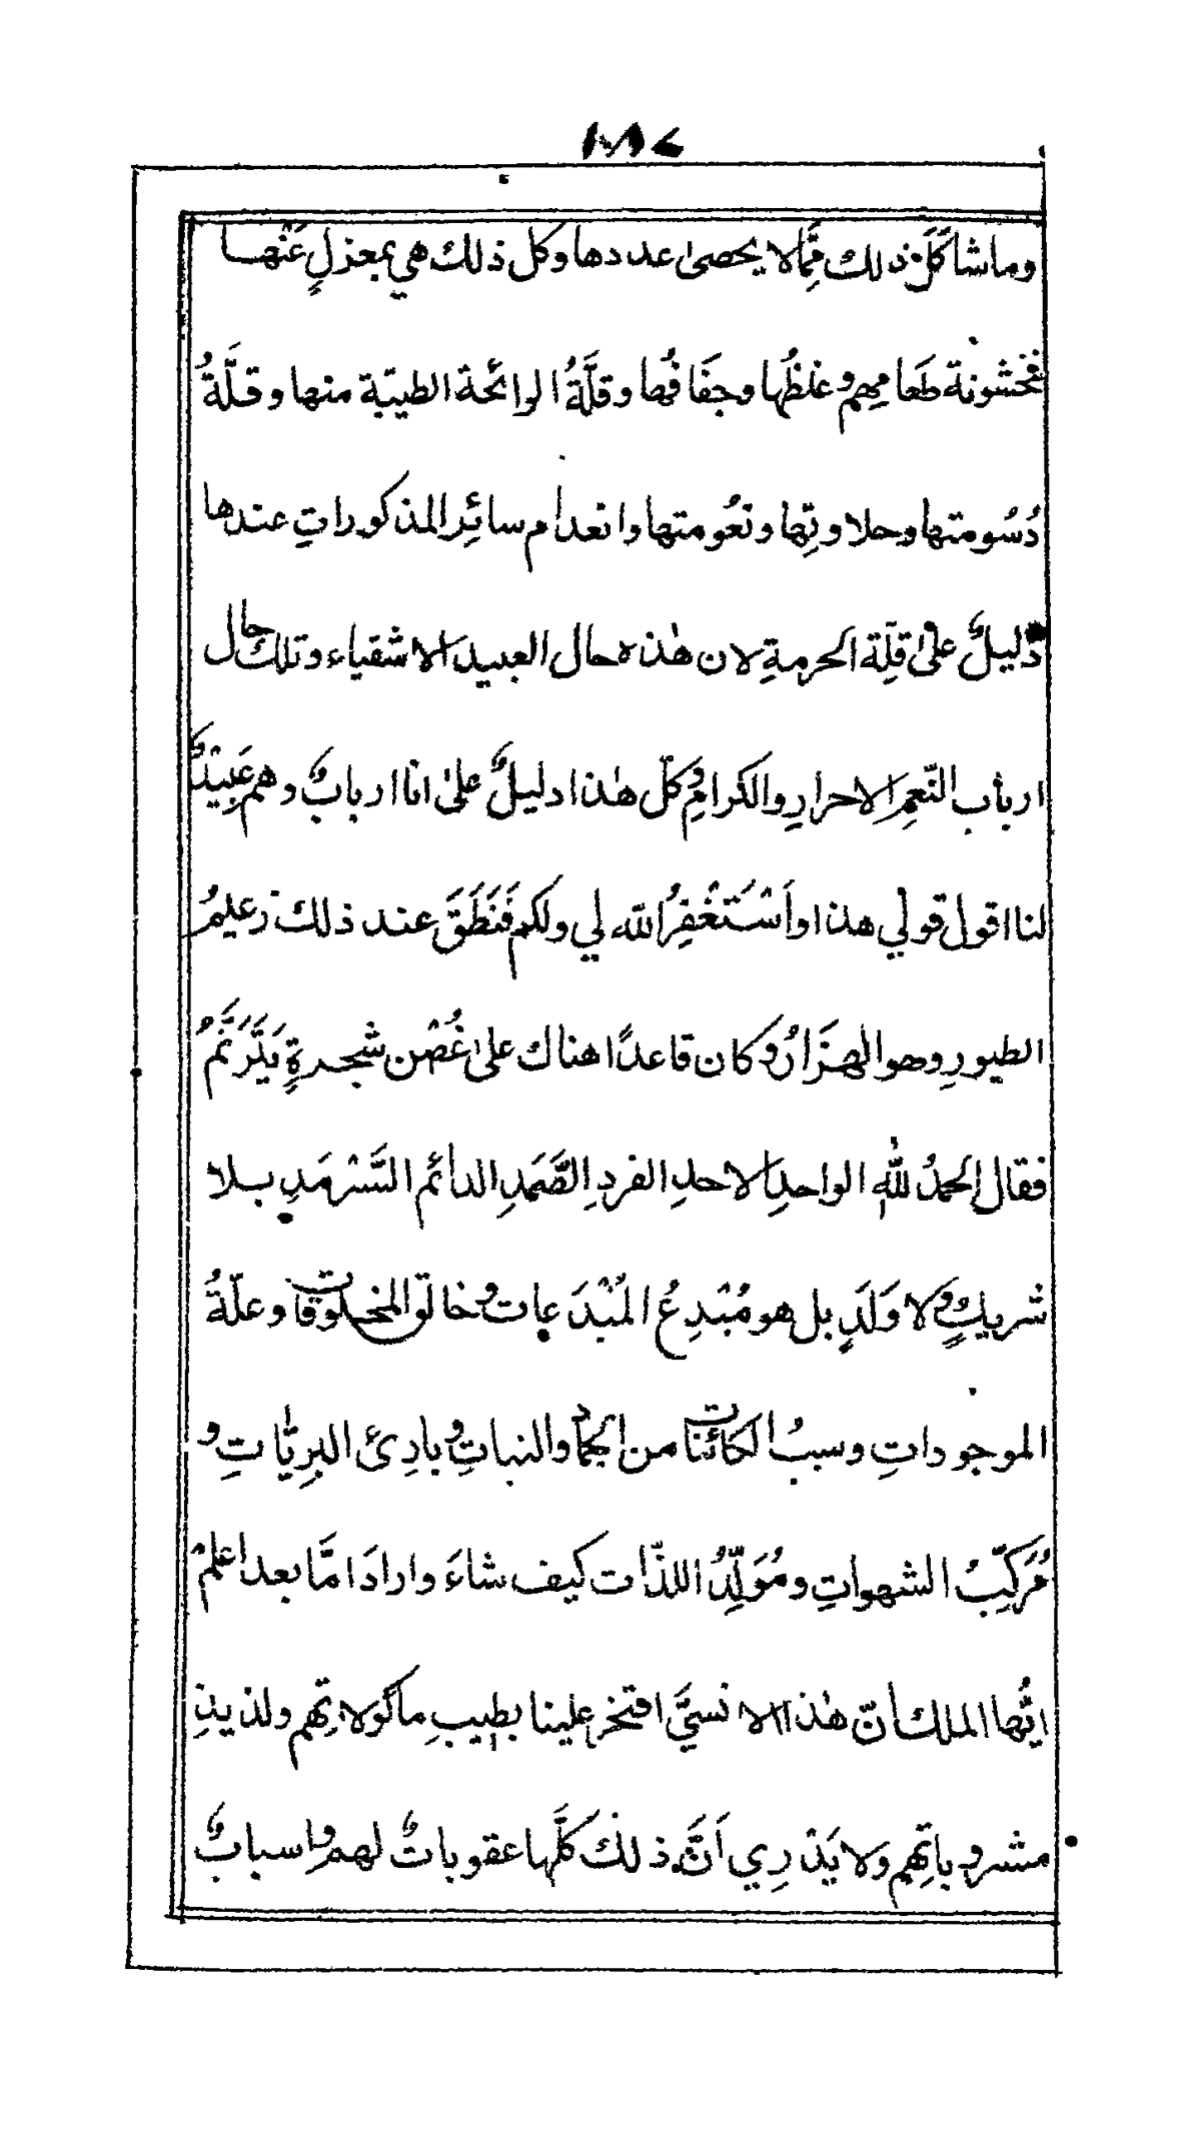 ١٨٤
وما شاكَلَ ذلك مِمَّا لا يحصىٰ عددها وكل ذلك هي بمعزلٍ عَنْها
فخشونة طَعامِهم وغلظُها وجفَافُها وقلَّةُ الرائحة الطيبّة منها وقلَّةُ
دُسُومتها وحلاوتِها ونعُومتها وانعدام سائِر المذكوراتِ عندها
دليلٌ علىٰ قلّة الحرمةِ لان هٰذه حال العبيد الاشقياء وتلك حال
ارباب النّعمِ الاحرارِ والكرامِ وكلّ هٰذا دليلٌ علىٰ انا اربابٌ وهم عَبِيْدٌ
لنا اقول قولي هذا وأَسْتَغْفِرُ الله لي ولكم فَنَطَقَ عند ذلك زعيمُ
الطيورِ وهو الهزَارُ وكان قاعدًا هناك علىٰ غُصْن شجرةٍ يَتَرَنَّمُ
فقال الحمدُ للّٰه الواحدِ الاحدِ الفردِ الصَّمَدِ الدائم السَّرْمَدِ بلا
شريكٍ ولا وَلَدٍ بل هو مُبْدِعُ المُبْدَعات وخالق المخلوقات وعلّةُ
الموجوداتِ وسببُ الكائنات من الجماد والنباتِ وبادِئ البرِيّٰاتِ و
مُرَكِّبُ الشهواتِ ومُوَلِّدُ اللذّات كيف شاءَ وارادَ امَّا بعد اعلمْ
ايُّها الملك أنّ هٰذا الانسيَّ افتخر علينا بطيبِ ماكولاتِهم ولذيذِ
مشروباتِهم ولا يَدْرِي اَنَّ ذلك كلَّها عقوباتٌ لهم واسبابٌ